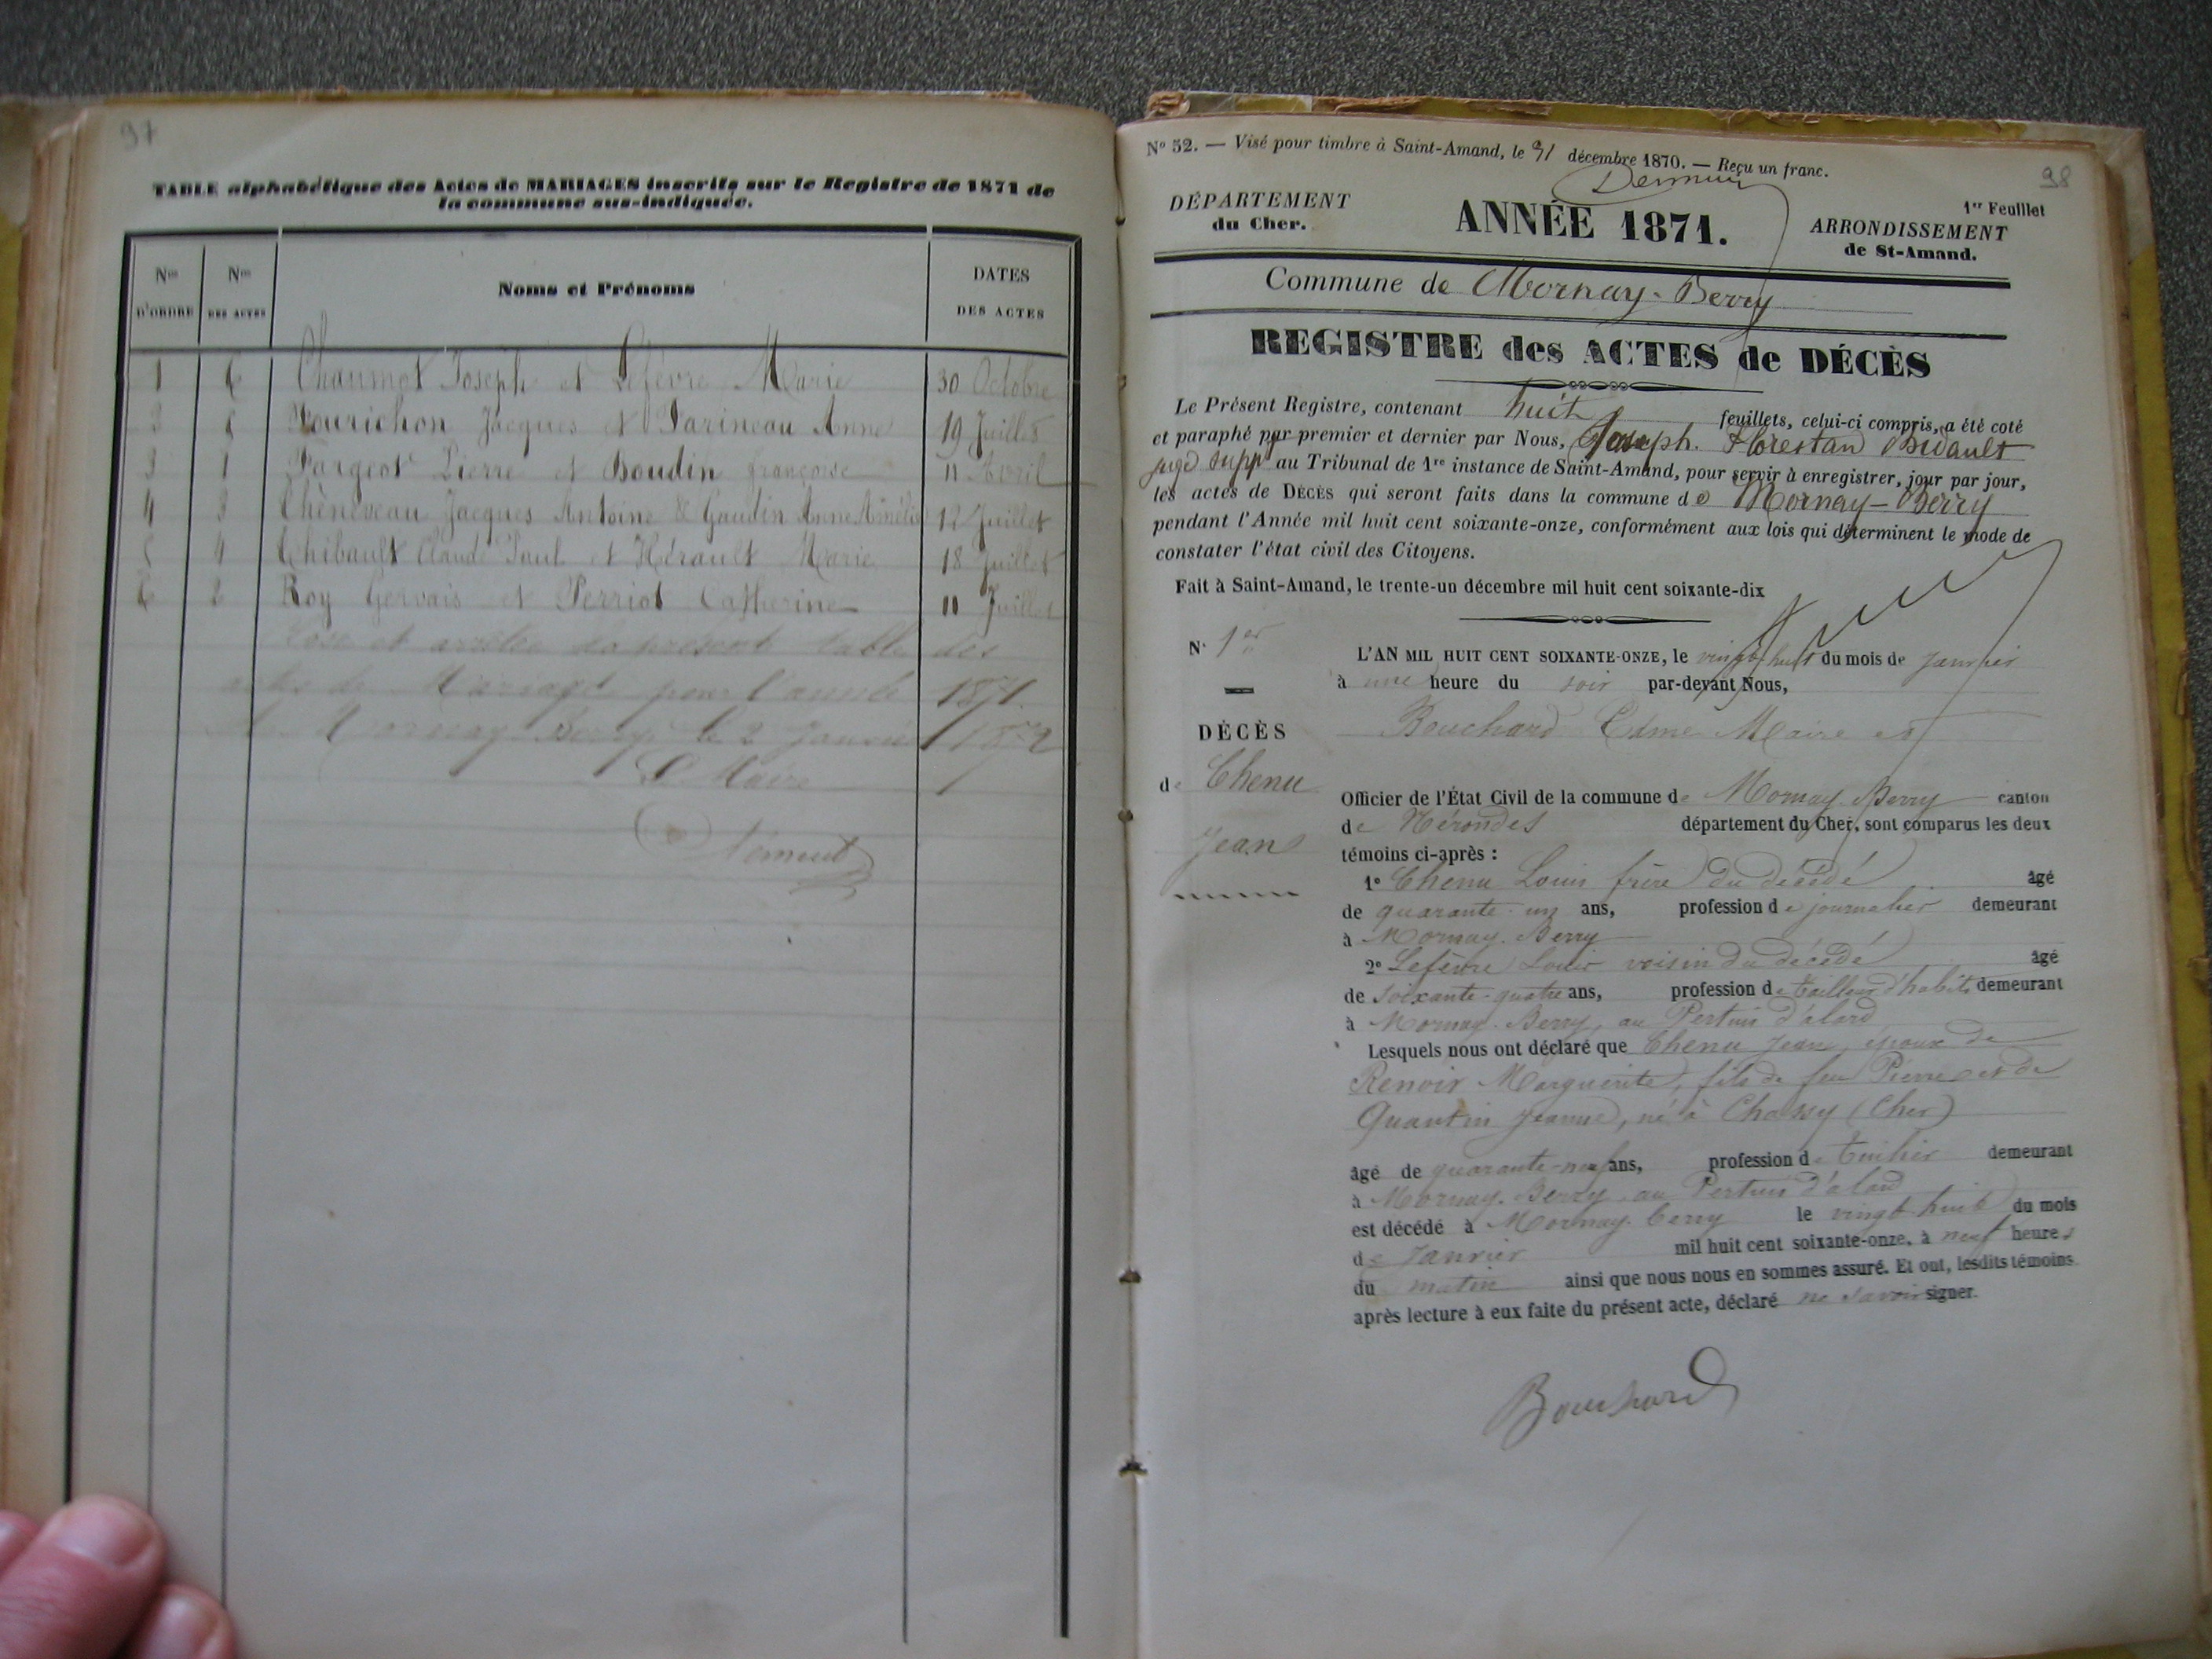 97
TABLE alphabétique des Actes de MARIAGES inscrits sur le Registre de 1871 de
la commune sus-indiquée.
Nos D'ORDRE Nos DES ACTES Noms et Prénoms DATES DES ACTES
1 6 Chaumot Joseph et Lefèvre Marie 30 Octobre
2 Fourichon Jacques et Parineau Anne 19 Juillet
3 1 Fargeot Pierre et Boudin françoise 11 Avril
4 3 Chèneveau Jacques Antoine & Gaudin Anne Amélie 12 Juillet
5 4 Thibault Claude Paul et Hérault Marie 18 Juillet
6 2 Roy Gervais et Perriot Catherine 11 Juillet
Close et arrêtée la présente table des
actes de Mariage pour l'année 1871.
Mornay Berry le 2 Janvier 1872
Le Maire
98
No 52. — Visé pour timbre à Saint-Amand, le 31 décembre 1870. — Reçu un franc.
DÉPARTEMENT
du Cher.
ANNÉE 1871.
1er Feuillet
ARRONDISSEMENT
de St-Amand.
Commune de Mornay-Berry
REGISTRE des ACTES de DÉCÈS
Le Présent Registre, contenant huit feuillets, celui-ci compris, a été coté
et paraphé par premier et dernier par Nous, Joseph Florestan Bidault
juge supp au Tribunal de 1re instance de Saint-Amand, pour servir à enregistrer, jour par jour,
les actes de DÉCÈS qui seront faits dans la commune de Mornay-Berry
pendant l'Année mil huit cent soixante-onze, conformément aux lois qui déterminent le mode de
constater l'état civil des Citoyens.
Fait à Saint-Amand, le trente-un décembre mil huit cent soixante-dix
N° 1er
DÉCÈS
de Chenu
Jean
L'AN MIL HUIT CENT SOIXANTE-ONZE, le vingt-huit du mois de Janvier
à une heure du soir par-devant Nous,
Bouchard Edme Maire et
Officier de l'État Civil de la commune de Mornay-Berry canton
de Nérondes département du Cher, sont comparus les deux
témoins ci-après :
1° Chenu Louis frère du décédé âgé
de quarante-un ans, profession de journalier demeurant
à Mornay-Berry
2° Lefèvre Louis voisin du décédé âgé
de soixante-quatre ans, profession de tailleur d'habits demeurant
à Mornay-Berry, au Pertuis d'alard
Lesquels nous ont déclaré que Chenu Jean, époux de
Renoir Marguerite, fils de feu Pierre et de
Quantin Jeanne, né à Chassy (Cher)
âgé de quarante-neuf ans, profession de tuilier demeurant
à Mornay-Berry au Pertuis d'alard
est décédé à Mornay-berry le vingt-huit du mois
de Janvier mil huit cent soixante-onze, à neuf heures
du matin ainsi que nous nous en sommes assuré. Et ont, lesdits témoins
après lecture à eux faite du présent acte, déclaré ne savoir signer.
Bouchard